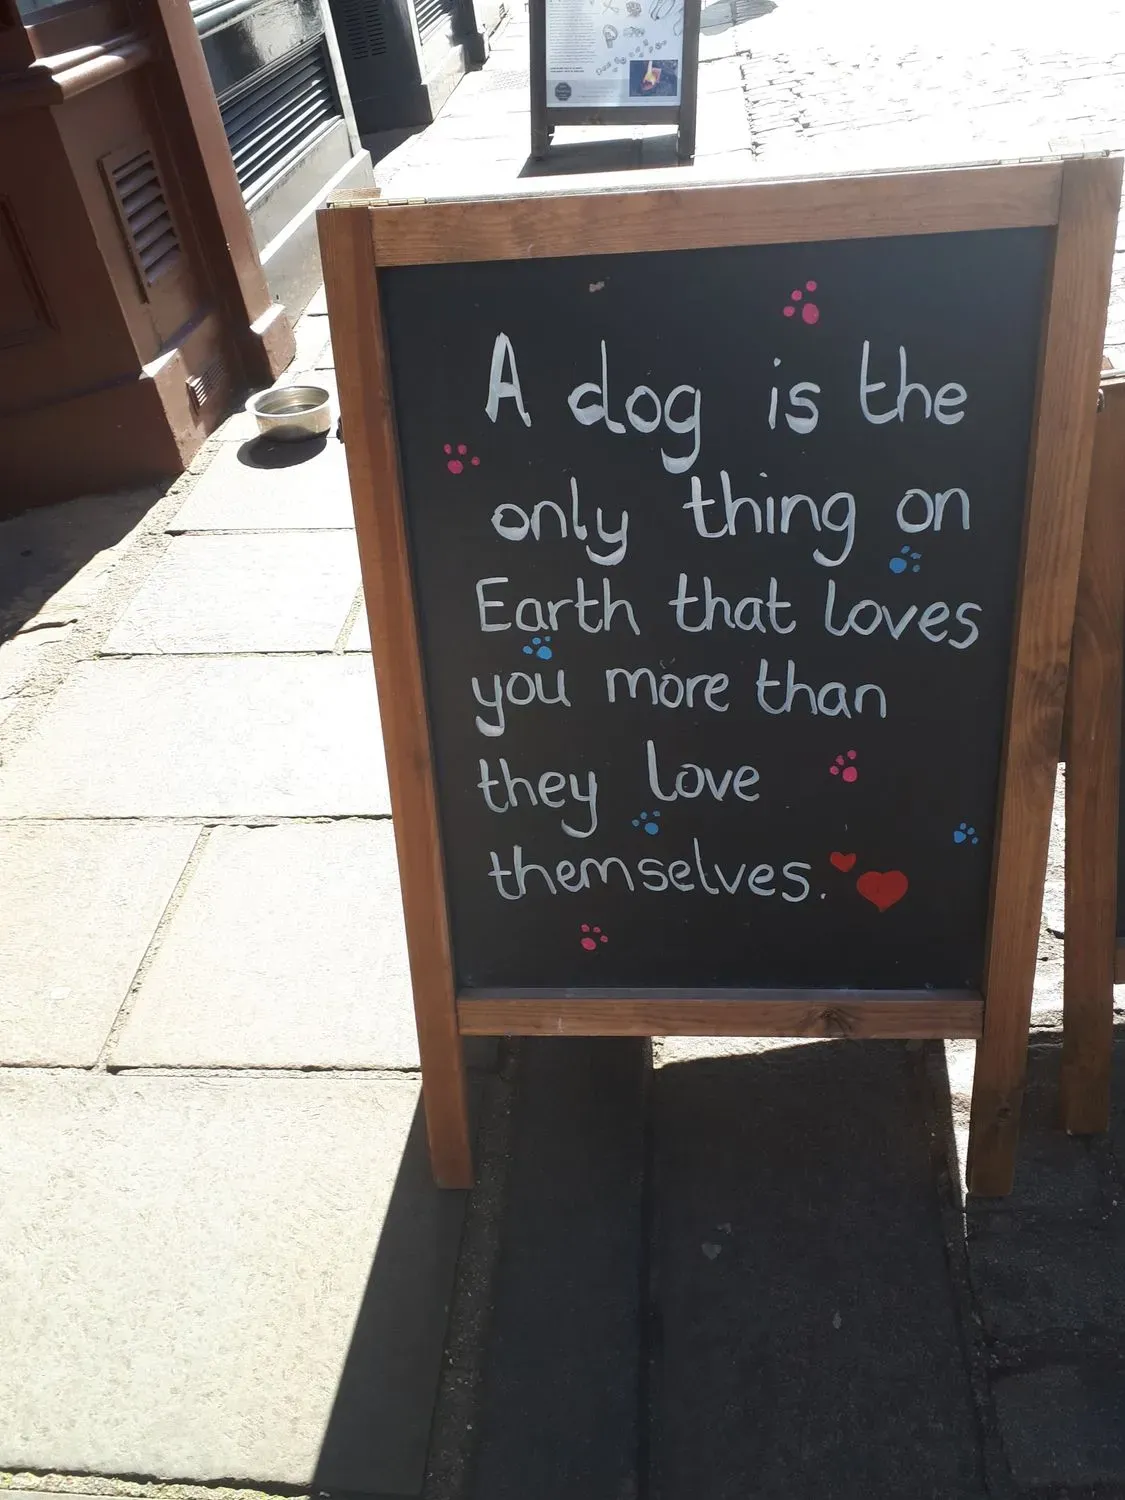 A dog is the
only thing on
Earth that loves
you more than
they love
themselves.